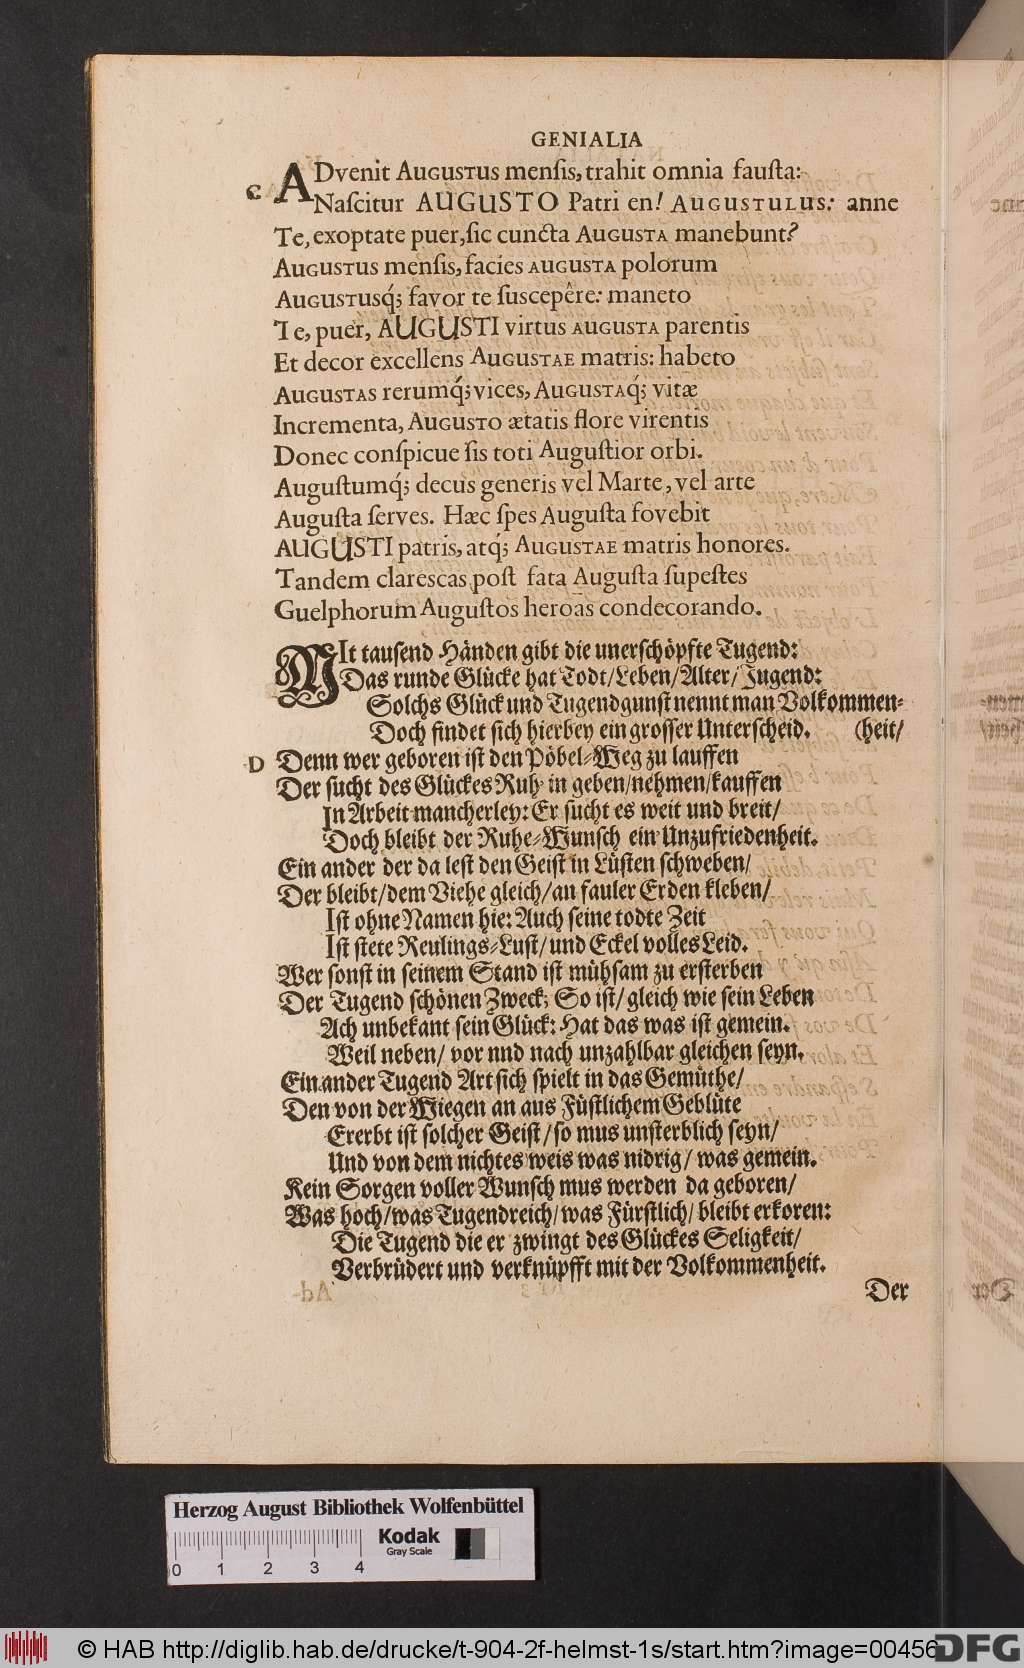 GENIALIA
C ADvenit AUGUSTUS menſis, trahit omnia fauſta:
Naſcitur AUGUSTO Patri en! AUGUSTULUS: anne
Te, exoptate puer, ſic cuncta AUGUSTA manebunt?
AUGUSTUS menſis, facies AUGUSTA polorum
AUGUSTUSq́; favor te ſuscepêre: maneto
Te, puer, AUGUSTI virtus AUGUSTA parentis
Et decor excellens AUGUSTAE matris: habeto
AUGUSTAS rerumq́; vices, AUGUSTAq́; vitæ
Incrementa, AUGUSTO ætatis flore virentis
Donec conſpicue ſis toti Auguſtior orbi.
Auguſtumq́; decus generis vel Marte, vel arte
Auguſta ſerves. Hæc ſpes Auguſta fovebit
AUGUSTI patris, atq́; AUGUSTAE matris honores.
Tandem clarescas poſt fata Auguſta ſupeſtes
Guelphorum Auguſtos heroas condecorando.
MIt tauſend Händen gibt die unerſchöpfte Tugend:
Das runde Glücke hat Todt/Leben/Alter/Jugend:
Solchs Glück und Tugendgunſt nennt man Volkommen-
Doch findet ſich hierbey ein groſſer Unterſcheid. (heit/
D Denn wer geboren iſt den Pöbel-Weg zu lauffen
Der ſucht des Glückes Ruh in geben/nehmen/kauffen
In Arbeit mancherley: Er ſucht es weit und breit/
Doch bleibt der Ruhe-Wunſch ein Unzufriedenheit.
Ein ander der da leſt den Geiſt in Lüſten ſchweben/
Der bleibt/dem Viehe gleich/an fauler Erden kleben/
Iſt ohne Namen hie: Auch ſeine todte Zeit
Iſt ſtete Reulings-Luſt/und Eckel volles Leid.
Wer ſonſt in ſeinem Stand iſt mühſam zu erſterben
Der Tugend ſchönen Zweck; So iſt/ gleich wie ſein Leben
Ach unbekant ſein Glück: Hat das was iſt gemein.
Weil neben/ vor nnd nach unzahlbar gleichen ſeyn.
Ein ander Tugend Art ſich ſpielt in das Gemüthe/
Den von der Wiegen an aus Füſtlichem Geblüte
Ererbt iſt ſolcher Geiſt/ſo mus unſterblich ſeyn/
Und von dem nichtes weis was nidrig/ was gemein.
Kein Sorgen voller Wunſch mus werden da geboren/
Was hoch/was Tugendreich/was Fürſtlich/ bleibt erkoren:
Die Tugend die er zwingt des Glückes Seligkeit/
Verbrüdert und verknüpfft mit der Volkommenheit.
Der
Herzog August Bibliothek Wolfenbüttel
Kodak
Gray Scale
0 1 2 3 4
© HAB http://diglib.hab.de/drucke/t-904-2f-helmst-1s/start.htm?image=00456
DFG